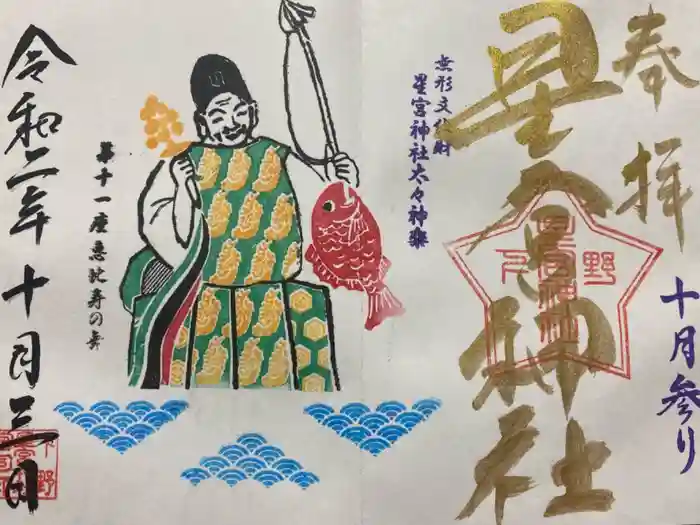 奉拝
十月参り
星宮神社
下野
星宮神社
無形文化財
星宮神社太々神楽
第十一座恵比寿の舞
令和二年十月三日
下野